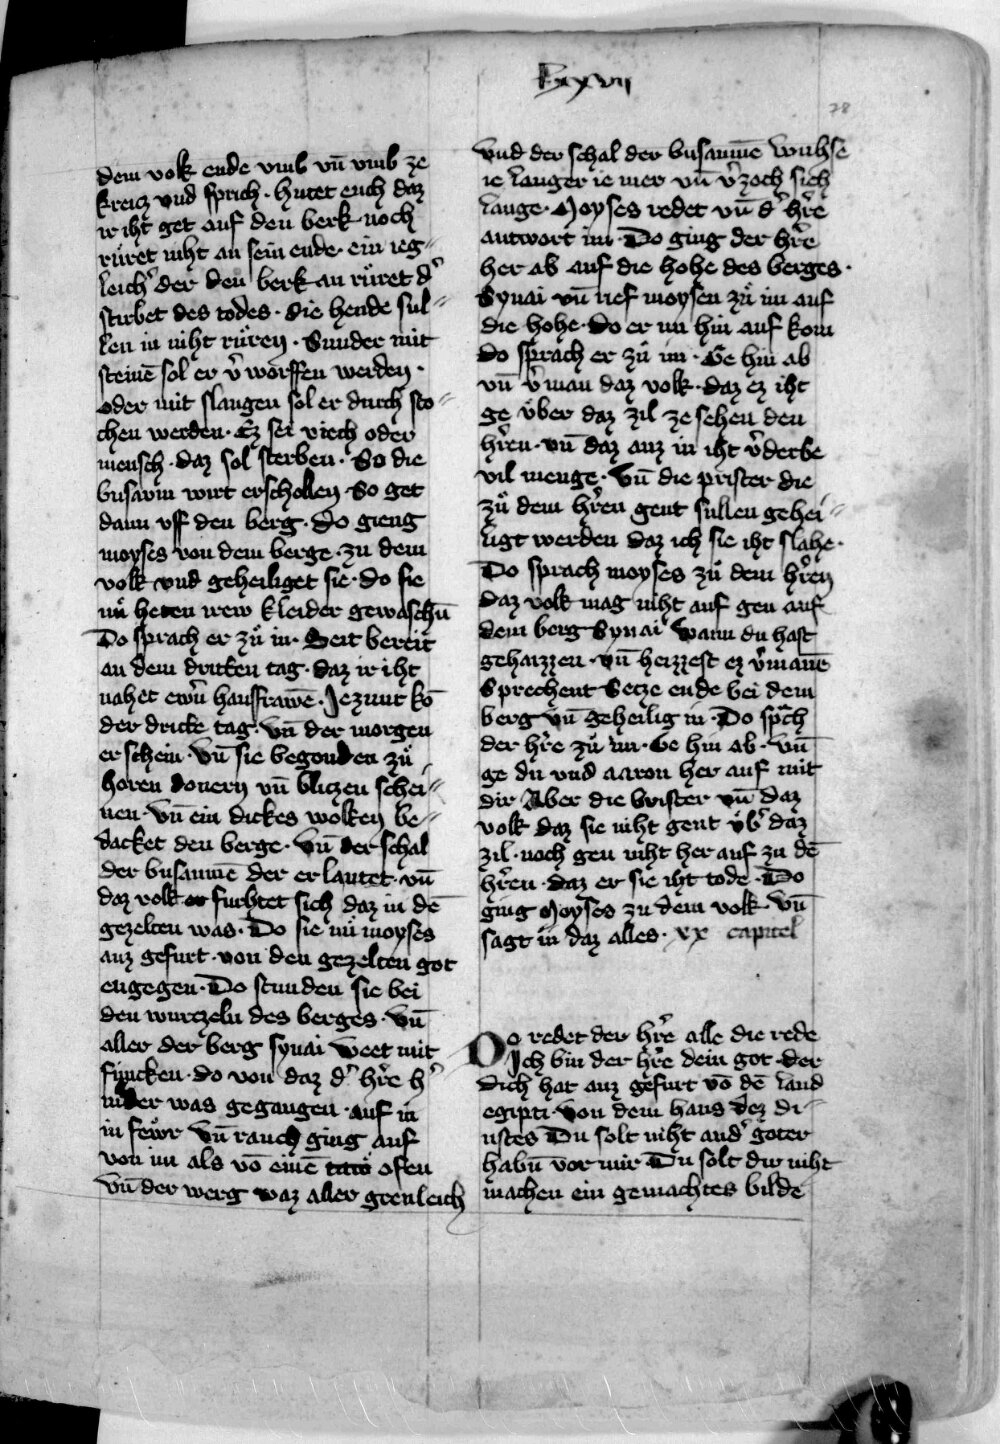 Lxxvii
28
dem volk ende vmb vn̄ vmb ze
kreicz vnd sprich · hutet euch daz
ir iht get auf den berk noch
ruͤret niht an sein ende · ein ieg⸗
leich͛ der den berk an ruͤret d͛
stirbet des todes · die hende sul⸗
len in niht ruͤren · Sunder mit
steinē sol er v͛worffen werden ·
oder mit slangen sol er durch sto⸗
chen werden · Ez sei viech oder
mensch · daz sol sterben · So die
busawm wirt erschollen So get
dann vff den berg · Do gieng
moyses von dem berge · zu dem
volk vnd geheiliget sie · do sie
nuͤ heten irew kleider gewaschn̄
Do sprach er zuͦ in · Seit bereit
an dem dritten tag · daz ir iht
nahet ewrn̄ hausfrawē · Jezunt kō
der dritte tag · vn̄ der morgen
erschein · vn̄ sie begonden zuͦ
horen donern vn̄ bliczen schei⸗
nen · vn̄ ein dickes wolken be⸗
dacket den berge · vn̄ der schal
der busaumē der erlautet · vn̄
daz volk er furhtet sich daz in dē
gezelten was · Do sie nuͤ moyses
auz gefurt · von den gezelten got
engegen · Do stunden sie bei
den wurczeln des berges · vn̄
aller der berg synai weet mit
funcken · do von daz d͛ hr͛e h͛
nider was gegangen · auf in
in fewr vn̄ rauch ging auf
von im als vō einē ofen
vn̄ der werg waz aller grenleich
vnd der schal der busaumē wuhse
ie langer ie mer vn̄ v͛zoch sich
lange · Moyses redet vn̄ d͛ hr͛e
antwort im · Do ging der hr͛e
her ab auf die hohe des berges ·
Synai vn̄ rief moysen zuͦ im auf
die hohe · do er nu hin auf kom
do sprach er zuͦ im · Ge hin ab
vn̄ v͛man daz volk · daz ez iht
ge uͤber daz zil ze sehen den
hr͛en · vn̄ daz auz in iht v͛derbe
vil menge · Vn̄ die prister die
zuͦ dem hr͛en gent sullen gehei⸗
ligt werden daz ich sie iht slahe ·
Do sprach moyses zuͦ dem hr͛en
daz volk mag niht auf gen auf
dem berg Synai wann du hast
gehaizzen · vn̄ heizzest ez v͛manē
Sprechent Secze ende bei dem
berg vn̄ geheilig in · Do sp͛ch
der hr͛e zuͦ im · Ge hin ab · vn̄
ge du vnd aaron her auf mit
dir Aber die brister vn̄ daz
volk daz sie niht gent uͤb͛ daz
zil · noch gen niht her auf zu dē
hr͛en · daz er sie iht tode · Do
ging Moyses zu dem volk · vn̄
sagt in daz alles · xx capitel
DO redet der hr͛e alle die rede
Ich bin der hr͛e dein got · der
dich hat auz gefurt vō dē land
egipti · von dem haus dez di⸗
nstes Du solt niht and͛ goter
habn̄ vor mir Du solt dir niht
machen ein gemachtes bilde